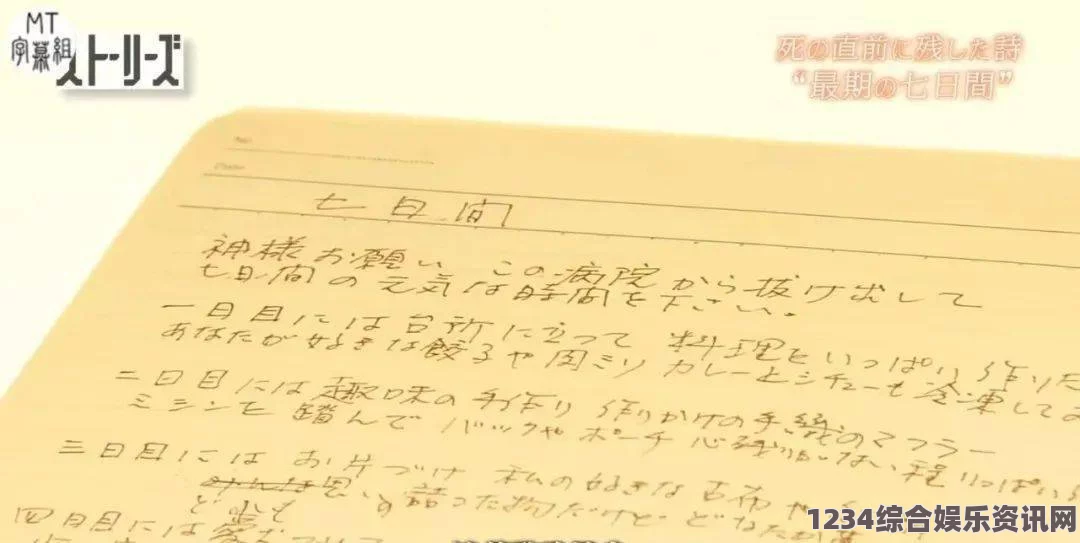 MT
字幕組
ストーリーズ
死の直前に残した詩
“最期の七日間”
No.
Date
七日間
神様お願い この病院から抜け出して
七日間の元気な時間を下さい。
一日目には台所に立って 料理をいっぱい作りた
あなたが好きな餃子や肉ミソ カレーとシチューも冷凍して
二日目には趣味の手作り 作りかけの手織のマフラー
ミシンも踏んで バックやポーチ 心残りがない程いっぱい
三日目には お片づけ 私の好きな古布や
どれも 思いの詰った物だけど どなたか
四日目には愛
1234综合娱乐资讯网